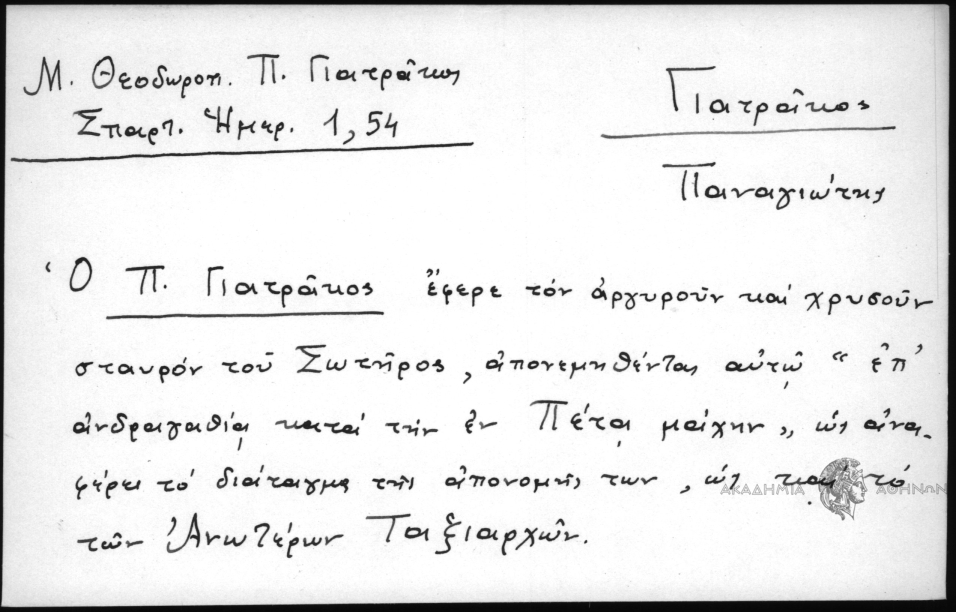 Μ. Θεοδωροπ. Π. Γιατρᾶκος
Σπαρτ. Ἡμερ. 1,54
Γιατρᾶκος
Παναγιώτης
Ὁ Π. Γιατρᾶκος ἔφερε τόν ἀργυροῦν καί χρυσοῦν
σταυρόν τοῦ Σωτῆρος, ἀπονεμηθέντας αὐτῷ “ἐπ’
ἀνδραγαθίᾳ κατά τήν ἐν Πέτᾳ μάχην„, ὡς ἀνα-
φέρει τό διάταγμα τῆς ἀπονομῆς των, ὡς καί τό
τῶν Ἀνωτέρων Ταξιαρχῶν.
ΑΚΑΔΗΜΙΑ ΑΘΗΝΩΝ